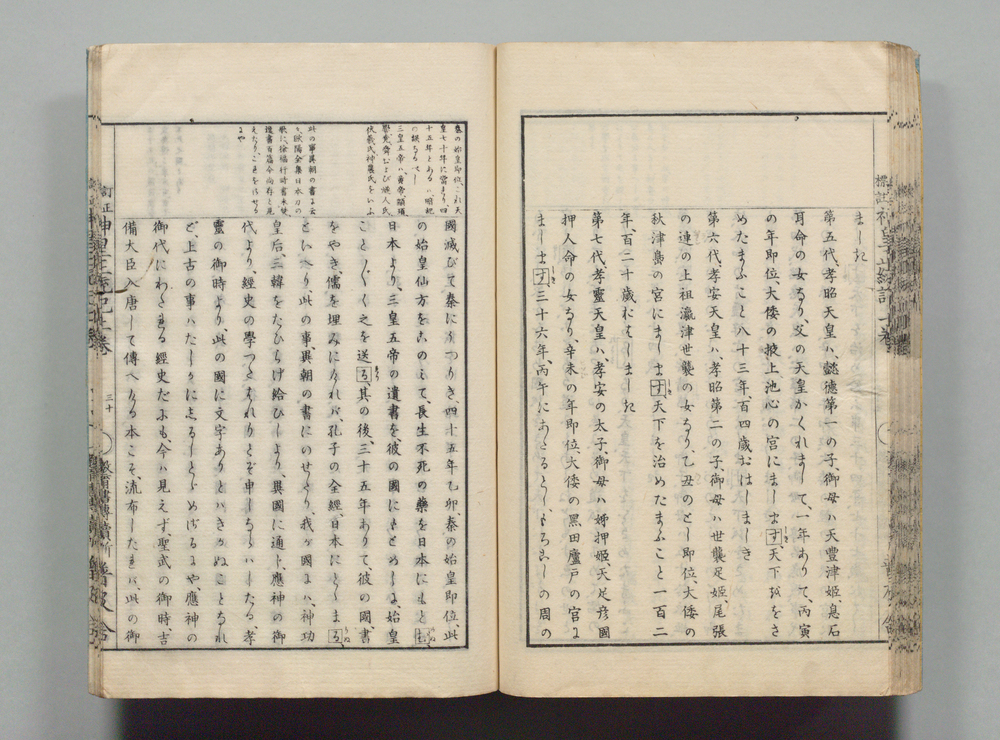 ましき
第五代、孝昭天皇ハ、懿德第一の子、御母ハ天豊津姬、息石
耳命の女なり、父の天皇かくれまして、一年ありて、丙寅
の年即位、大倭の掖上池心の宮にまします天下をさ
めたまふこと八十三年、百四歳おはしましき
第六代、孝安天皇ハ、孝昭第二の子、御母ハ世襲足姬尾張
の連の上祖瀛津世襲の女なり、乙丑のとし即位、大倭の
秋津島の宮にましますす天下を治めたまふこと一百二
年、百二十歳おはしましき
第七代、孝靈天皇ハ、孝安の太子、御母ハ姉押姬、天足彥國
押人命の女なり、辛未の年即位、大倭の黑田廬戸の宮に
まします三十六年、丙午にあたるとし、もろこしの周の
國滅びて秦にうつりき、四十五年乙卯、秦の始皇即位、此
の始皇仙方をこのみて、長生不死の藥を日本にもと
日本より、三皇五帝の遺書を彼の國にもとめしに、始皇
ことごとく之を送る、其の後三十五年ありて、彼の國、書
をやき儒を埋みにければ、孔子の全經、日本にとゞまる
といへり、此の事、異朝の書にのせたり、我が國には、神功
皇后、三韓をたひらげ給ひしより、異國に通ト、應神の御
代より、經史の學つたはれりとぞ申しならハしたる、孝
靈の御時より、此の國に文字ありとハきかぬことなれ
ど、上古の事ハたしかにしるしとゞめざるにや、應神の
御代にわたれる經史だにも、今ハ見えず、聖武の御時、吉
備大臣、入唐して傳へたる本こそ、流布したれバ、此の御
秦の始皇即位、これ天
皇七十年に當り、四
十五年とあるハ、
の誤なるべし
三皇五帝ハ黄帝、顓頊、
嚳、堯、舜および燧人氏、
伏羲氏、神農氏をいふ
此の事異朝の書に云
々、歐陽全集日本刀の
歌に、徐福行時書未焚、
逸書百篇今尚存と見
えたり、これをいへる
にや
標註
訂正
三十